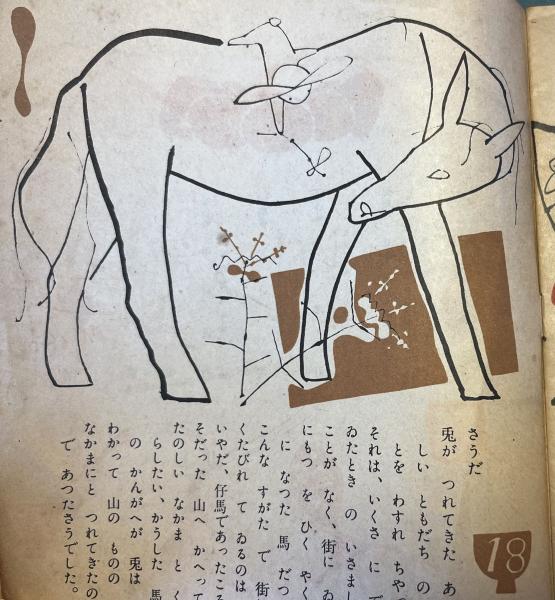 さうだ
兎が つれてきた あ
しい ともだち の
とを わすれ ちや
それは、いくさ に で
ゐたとき の いさまし
ことが なく、街に ゐ
にもつ を ひく やく
に なつた 馬 だつ
こんな すがた で 街
くたびれ て ゐるのは
いやだ、仔馬であつたころ
そだつた 山へ かへつて
たのしい なかま と く
らしたい、かうした 馬
の かんがへが 兎は
わかつて 山の ものの
なかまにと つれてきたの
で あつたさうでした。
18